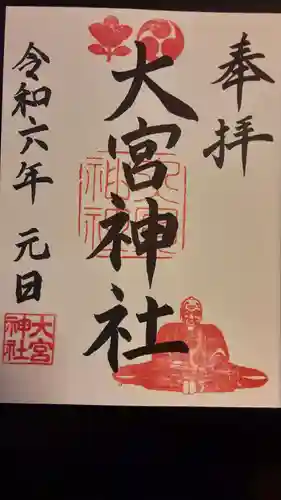 奉拝
大宮神社
令和六年 元日
大宮
神社